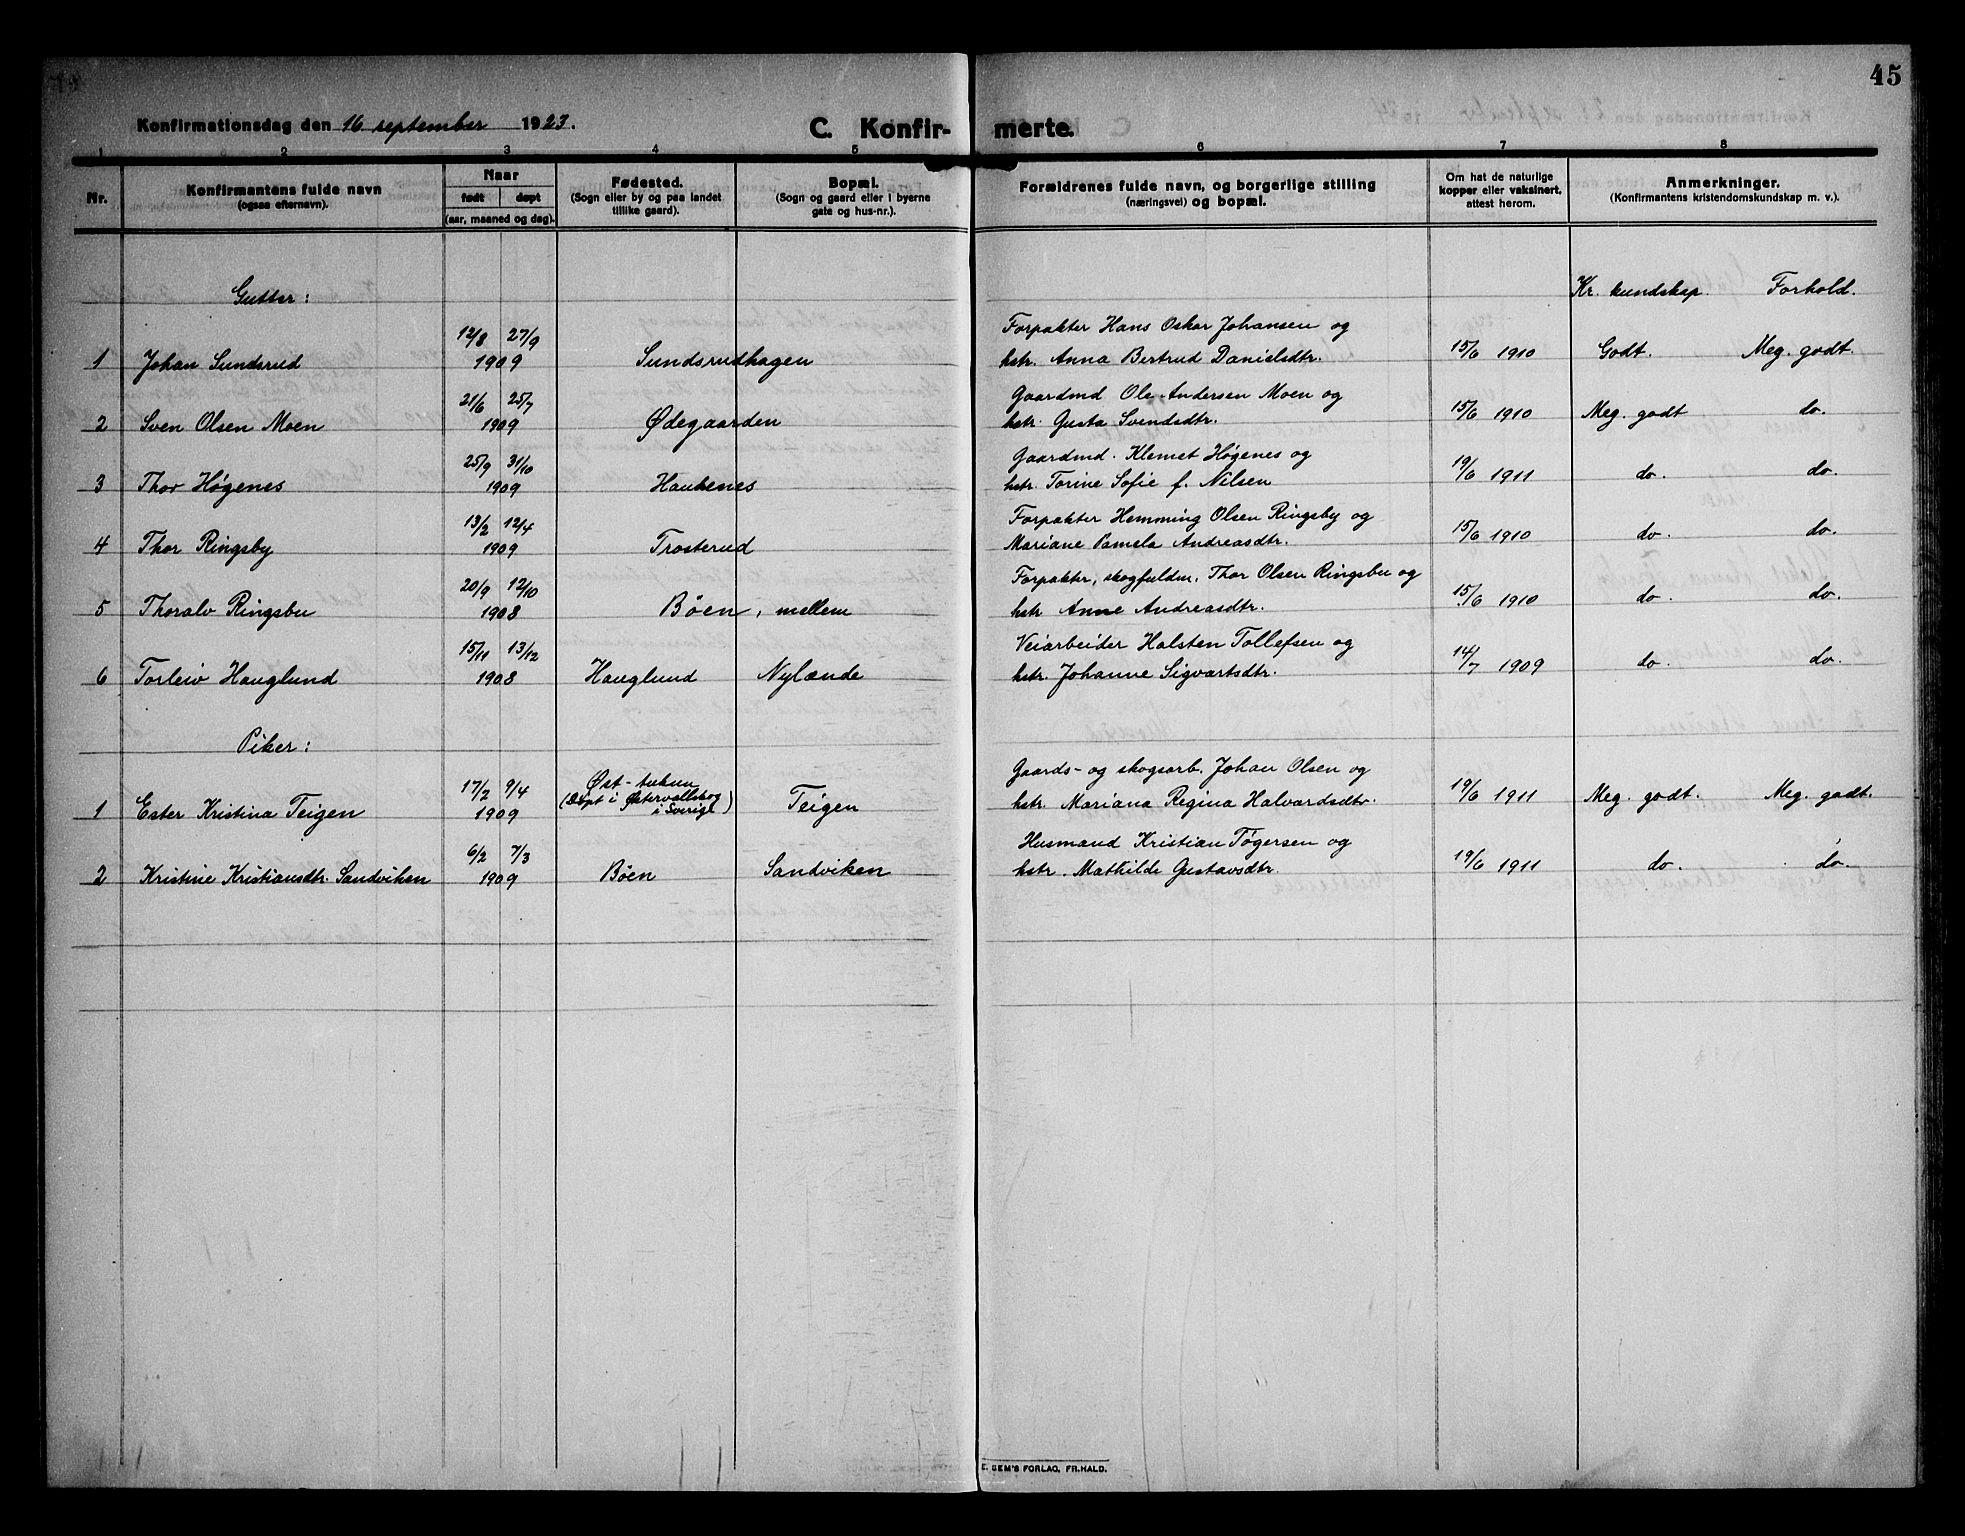 45
Konfirmationsdag den 16 september 1923.
C. Konfir- merte.
1 2 3 4 5 6 7 8
Nr.
Konfirmantens fulde navn
(ogsaa efternavn).
Naar
født døpt
(aar, maaned og dag).
Fødested.
(Sogn eller by og paa landet
tillike gaard).
Bopæl.
(Sogn og gaard eller i byerne
gate og hus-nr.).
Forældrenes fulde navn, og borgerlige stilling
(næringsvei) og bopæl.
Om hat de naturlige
kopper eller vaksinert,
attest herom.
Anmerkninger.
(Konfirmantens kristendomskundskap m. v.).
Gutter: Kr. kundskap. Forhold.
12/8 27/9 Forpakter Hans Oskar Johansen og
1 Johan Sundsrud 1909 Sundsrudhagen hstr. Anna Bertrud Danielsdtr. 15/6 1910 Godt. Meg. godt.
21/6 25/7 Gaardmd Ole Andersen Moen og
2 Sven Olsen Moen 1909 Ødegaarden hstr. Gusta Svendsdtr. 15/6 1910 Meg. godt do.
25/9 31/10 Gaardmd. Klemet Høgenes og
3 Thor Høgenes 1909 Haukenes hstr. Torine Sofie f. Nilsen 19/6 1911 do. do.
13/2 12/4 Forpakter Hemming Olsen Ringsby og
4 Thor Ringsby 1909 Trosterud Mariane Pamela Andreasdtr. 15/6 1910 do. do.
20/9 12/10 Forpakter, skogfuldm. Thor Olsen Ringsbu og
5 Thoralv Ringsbu 1908 Bøen, mellem hstr Anne Andreasdtr. 15/6 1910 do. do.
15/11 13/12 Veiarbeider Halsten Tollefsen og
6 Torleiv Hauglund 1908 Hauglund Nylænde hstr. Johanne Sigvartsdtr. 14/7 1909 do. do.
Piker:
17/2 9/4 Øst- (Døpt i Østervallskog i Sverige) Gaards- og skogsarb. Johan Olsen og
1 Ester Kristina Teigen 1909 Teigen hstr. Mariana Regina Halvardsdtr. 19/6 1911 Meg. godt. Meg. godt.
6/2 7/3 Husmand Kristian Tøgersen og
2 Kristine Kristiansdtr. Sandviken 1909 Bøen Sandviken hstr. Mathilde Gustavsdtr. 19/6 1911 do. do.
E. SEM'S FORLAG, FR.HALD.